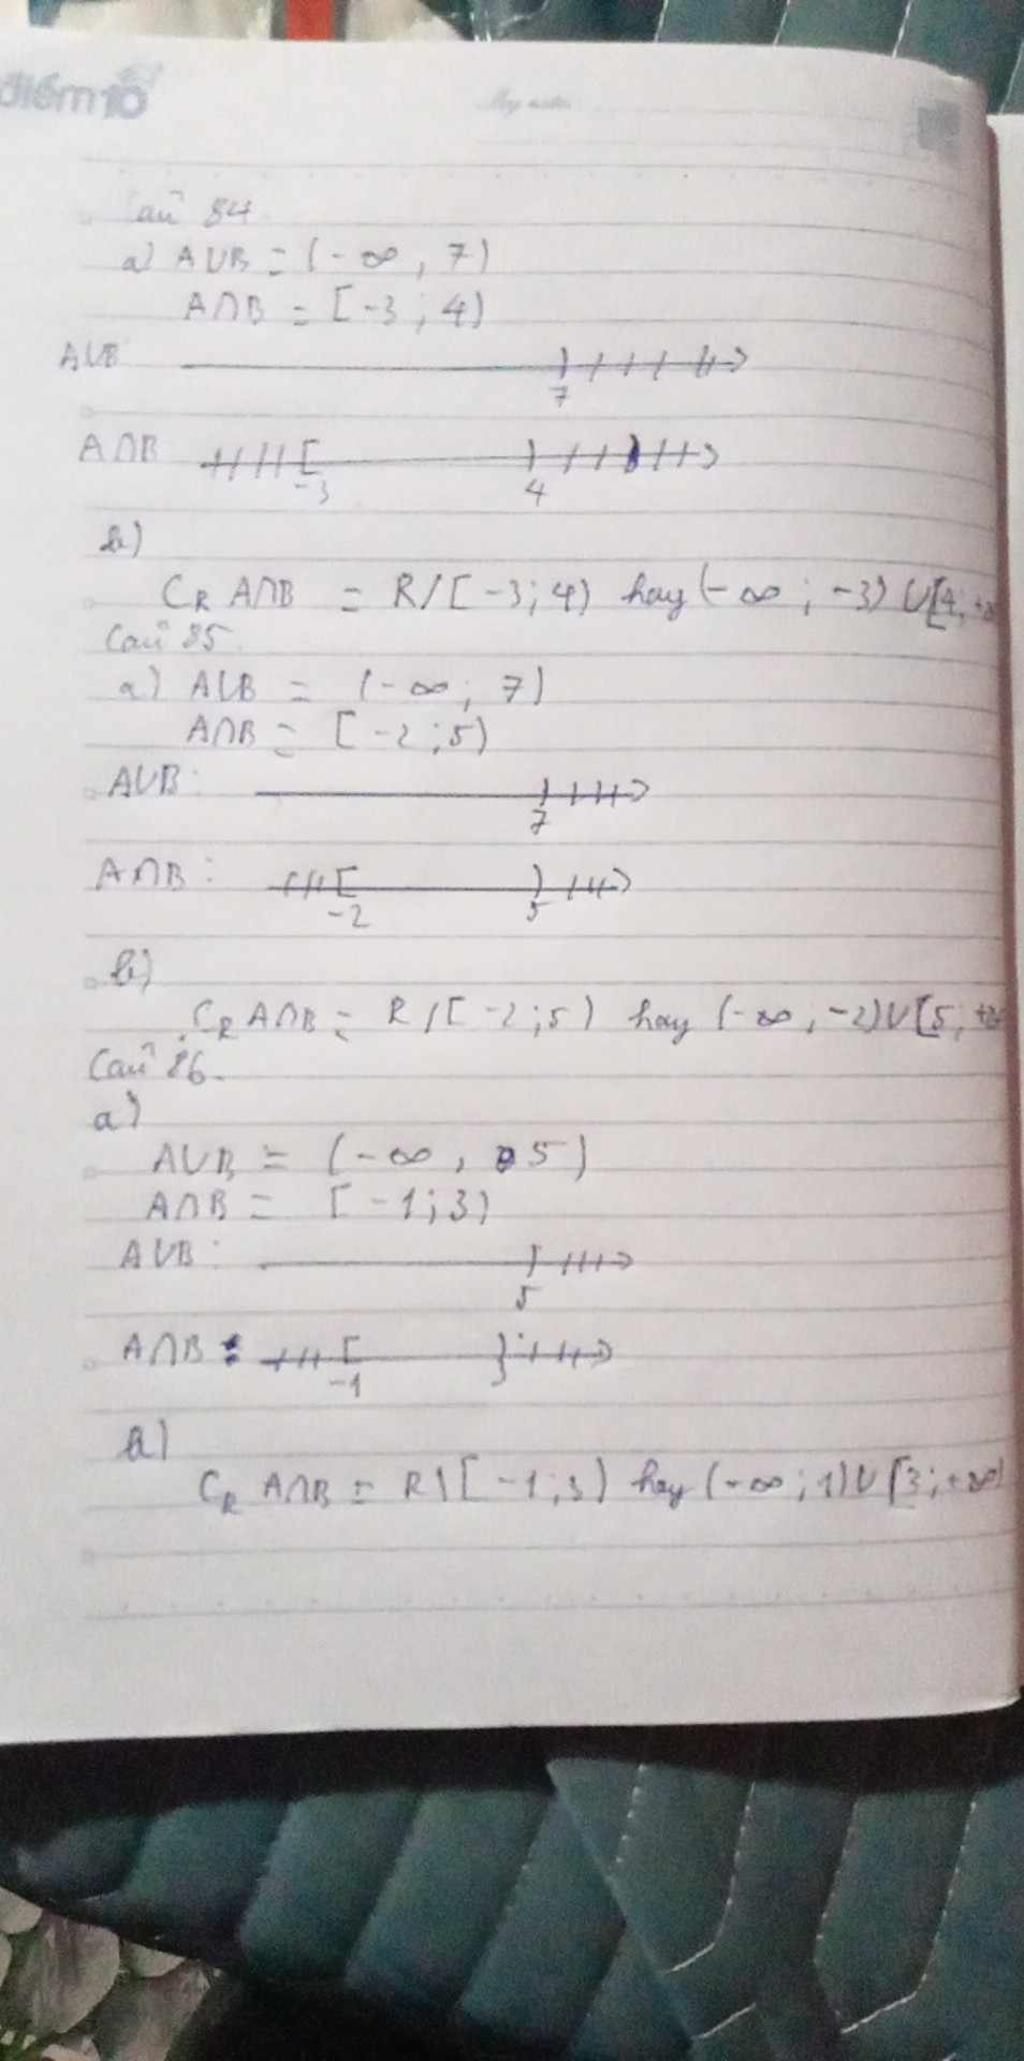 điểm10
Câu 84
a) A∪B = (-∞, 7)
A∩B = [-3; 4)
A∪B
7
A∩B
-3 4
b)
C_R A∩B = R/[-3;4) hay (-∞; -3) ∪[4, +∞
Câu 85.
a) A∪B = (-∞; 7)
A∩B = [-2;5)
A∪B:
7
A∩B:
-2 5
b)
C_R A∩B = R/[-2;5) hay (-∞, -2)∪[5; +∞
Câu 86.
a)
A∪B = (-∞, 5)
A∩B = [-1;3)
A∪B:
5
A∩B:
-1 3
b)
C_R A∩B = R\[-1;3) hay (-∞;1)∪[3;+∞)